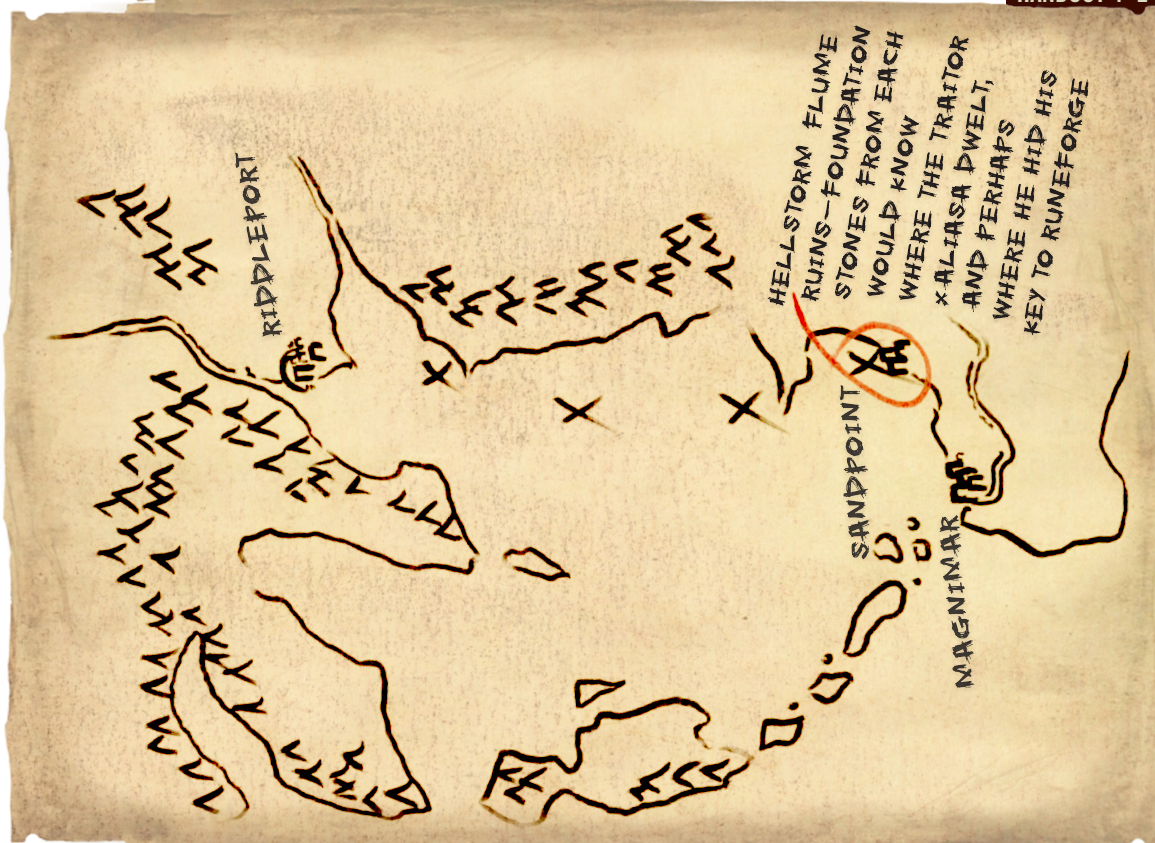 HANDOUT
RIDDLEPORT
HELLSTORM FLUME
RUINS–FOUNDATION
STONES FROM EACH
WOULD KNOW
WHERE THE TRAITOR
XALIASA DWELT,
AND PERHAPS
WHERE HE HID HIS
KEY TO RUNEFORGE
SANDPOINT
MAGNIMAR